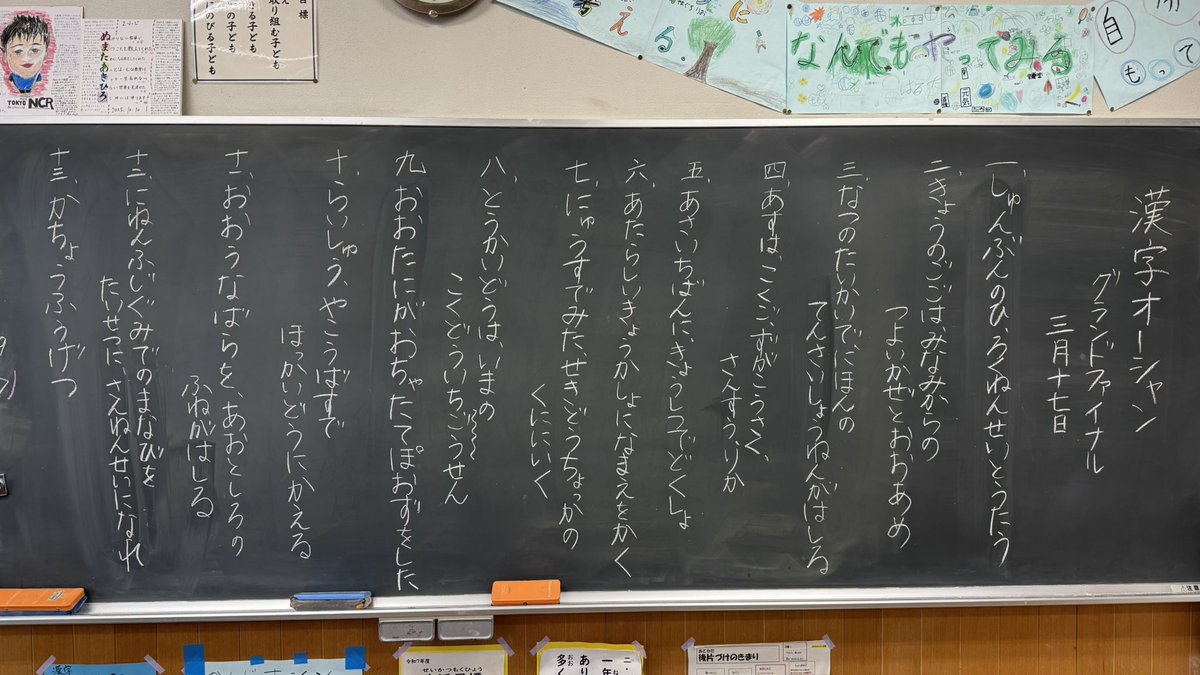 漢字オーシャン
グランドファイナル
三月十七日
一、しゅんぶんのひ、ろくねんせいとうたう
二、きょうのごごは、みなみからの
つよいかぜとおおあめ
三、なつのたいかいで、にほんの
てんさいしょうねんがはしる
四、あすは、こくご、ずがこうさく、
さんすう、りか
五、あさいちばんに、きょうしつでどくしょ
六、あたらしいきょうかしょになまえをかく
七、にゅうすでみた、せきどうちょっかの
くににいく
八、とうかいどうは、いまの
こくどういちごうせん
九、おおたにが、おちゃたてぽおずをした
十、らいしゅう、やこうばすで
ほっかいどうにかえる
十一、おおうなばらを、あおとしろの
ふねがはしる
十二、にねんふじぐみでのまなびを
たいせつに、さんねんせいになれ
十三、かちょうふうげつ
なんでもやってみる
自
もって
目様
取り組む子ども
の子ども
る子ども
のびる子ども
ぬまたあきひろ
TOKYO NCR
漢字
令和7年度
せいかつもくひょう
後片づけのきまり